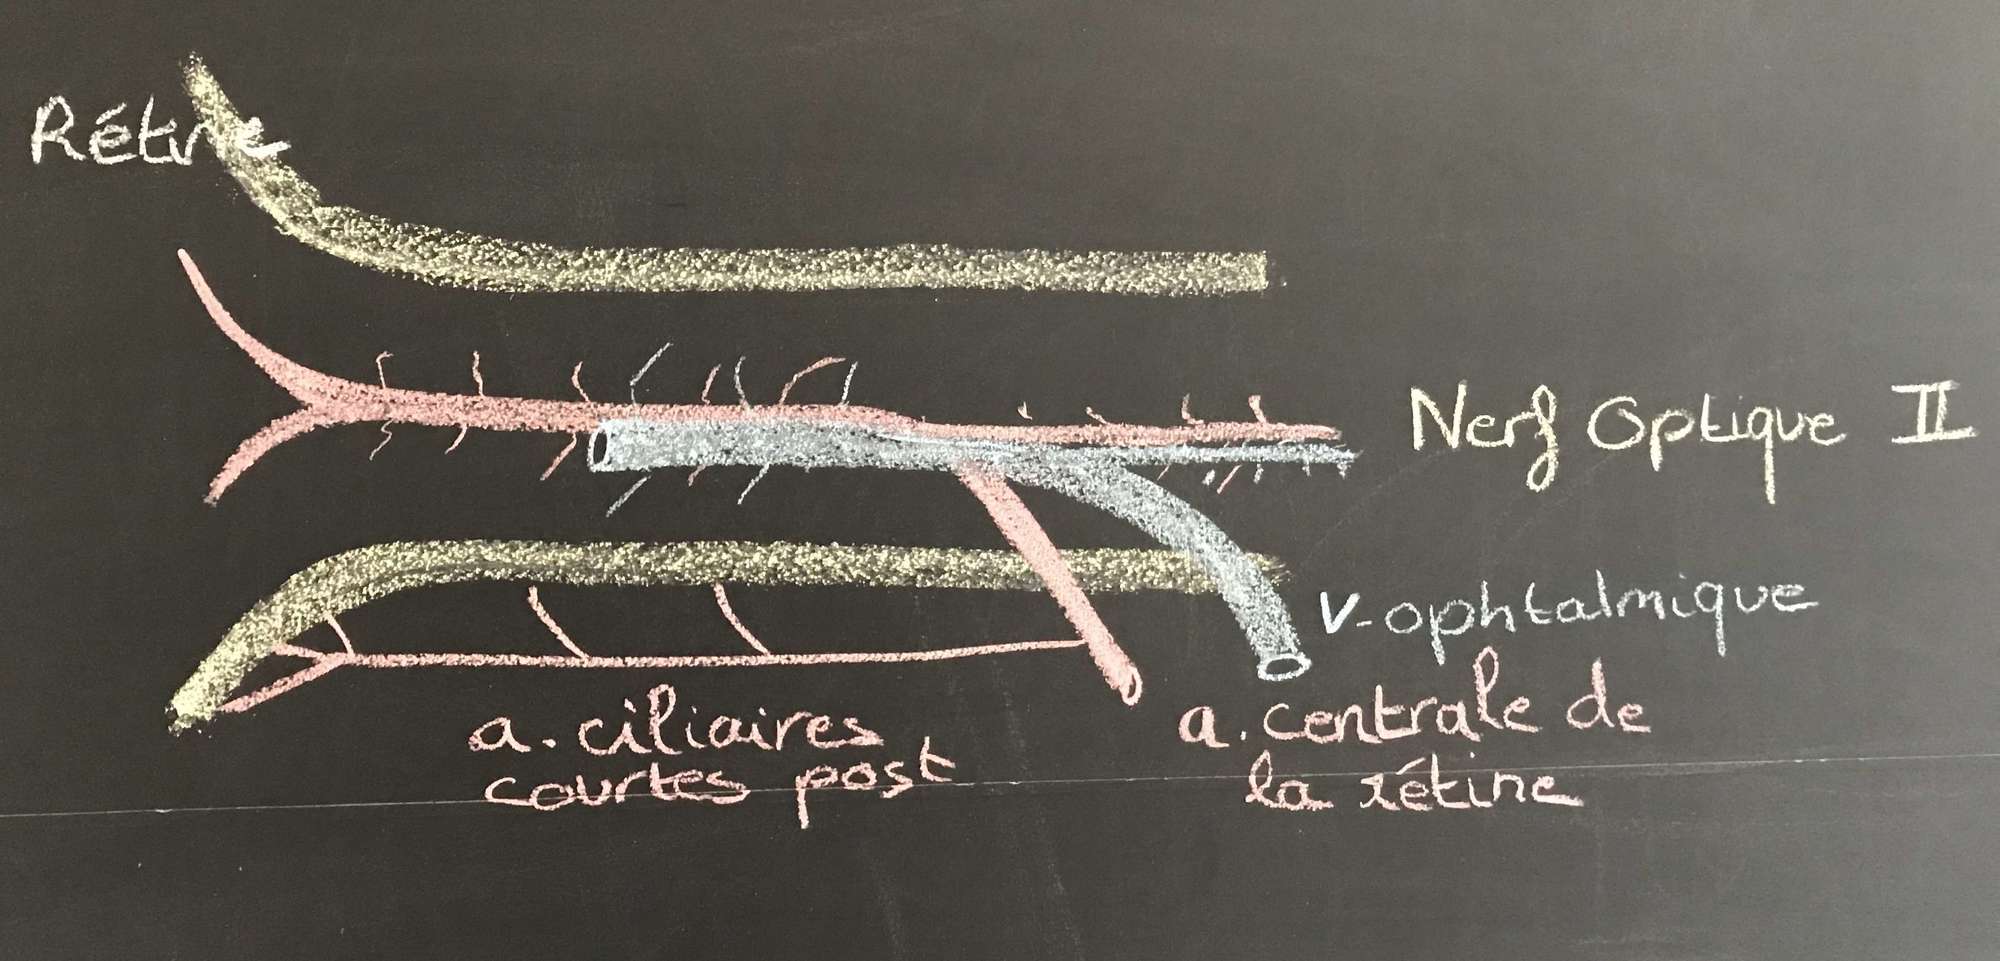 Rétine
Nerf Optique II
v-ophtalmique
a. ciliaires
courtes post
a. centrale de
la rétine